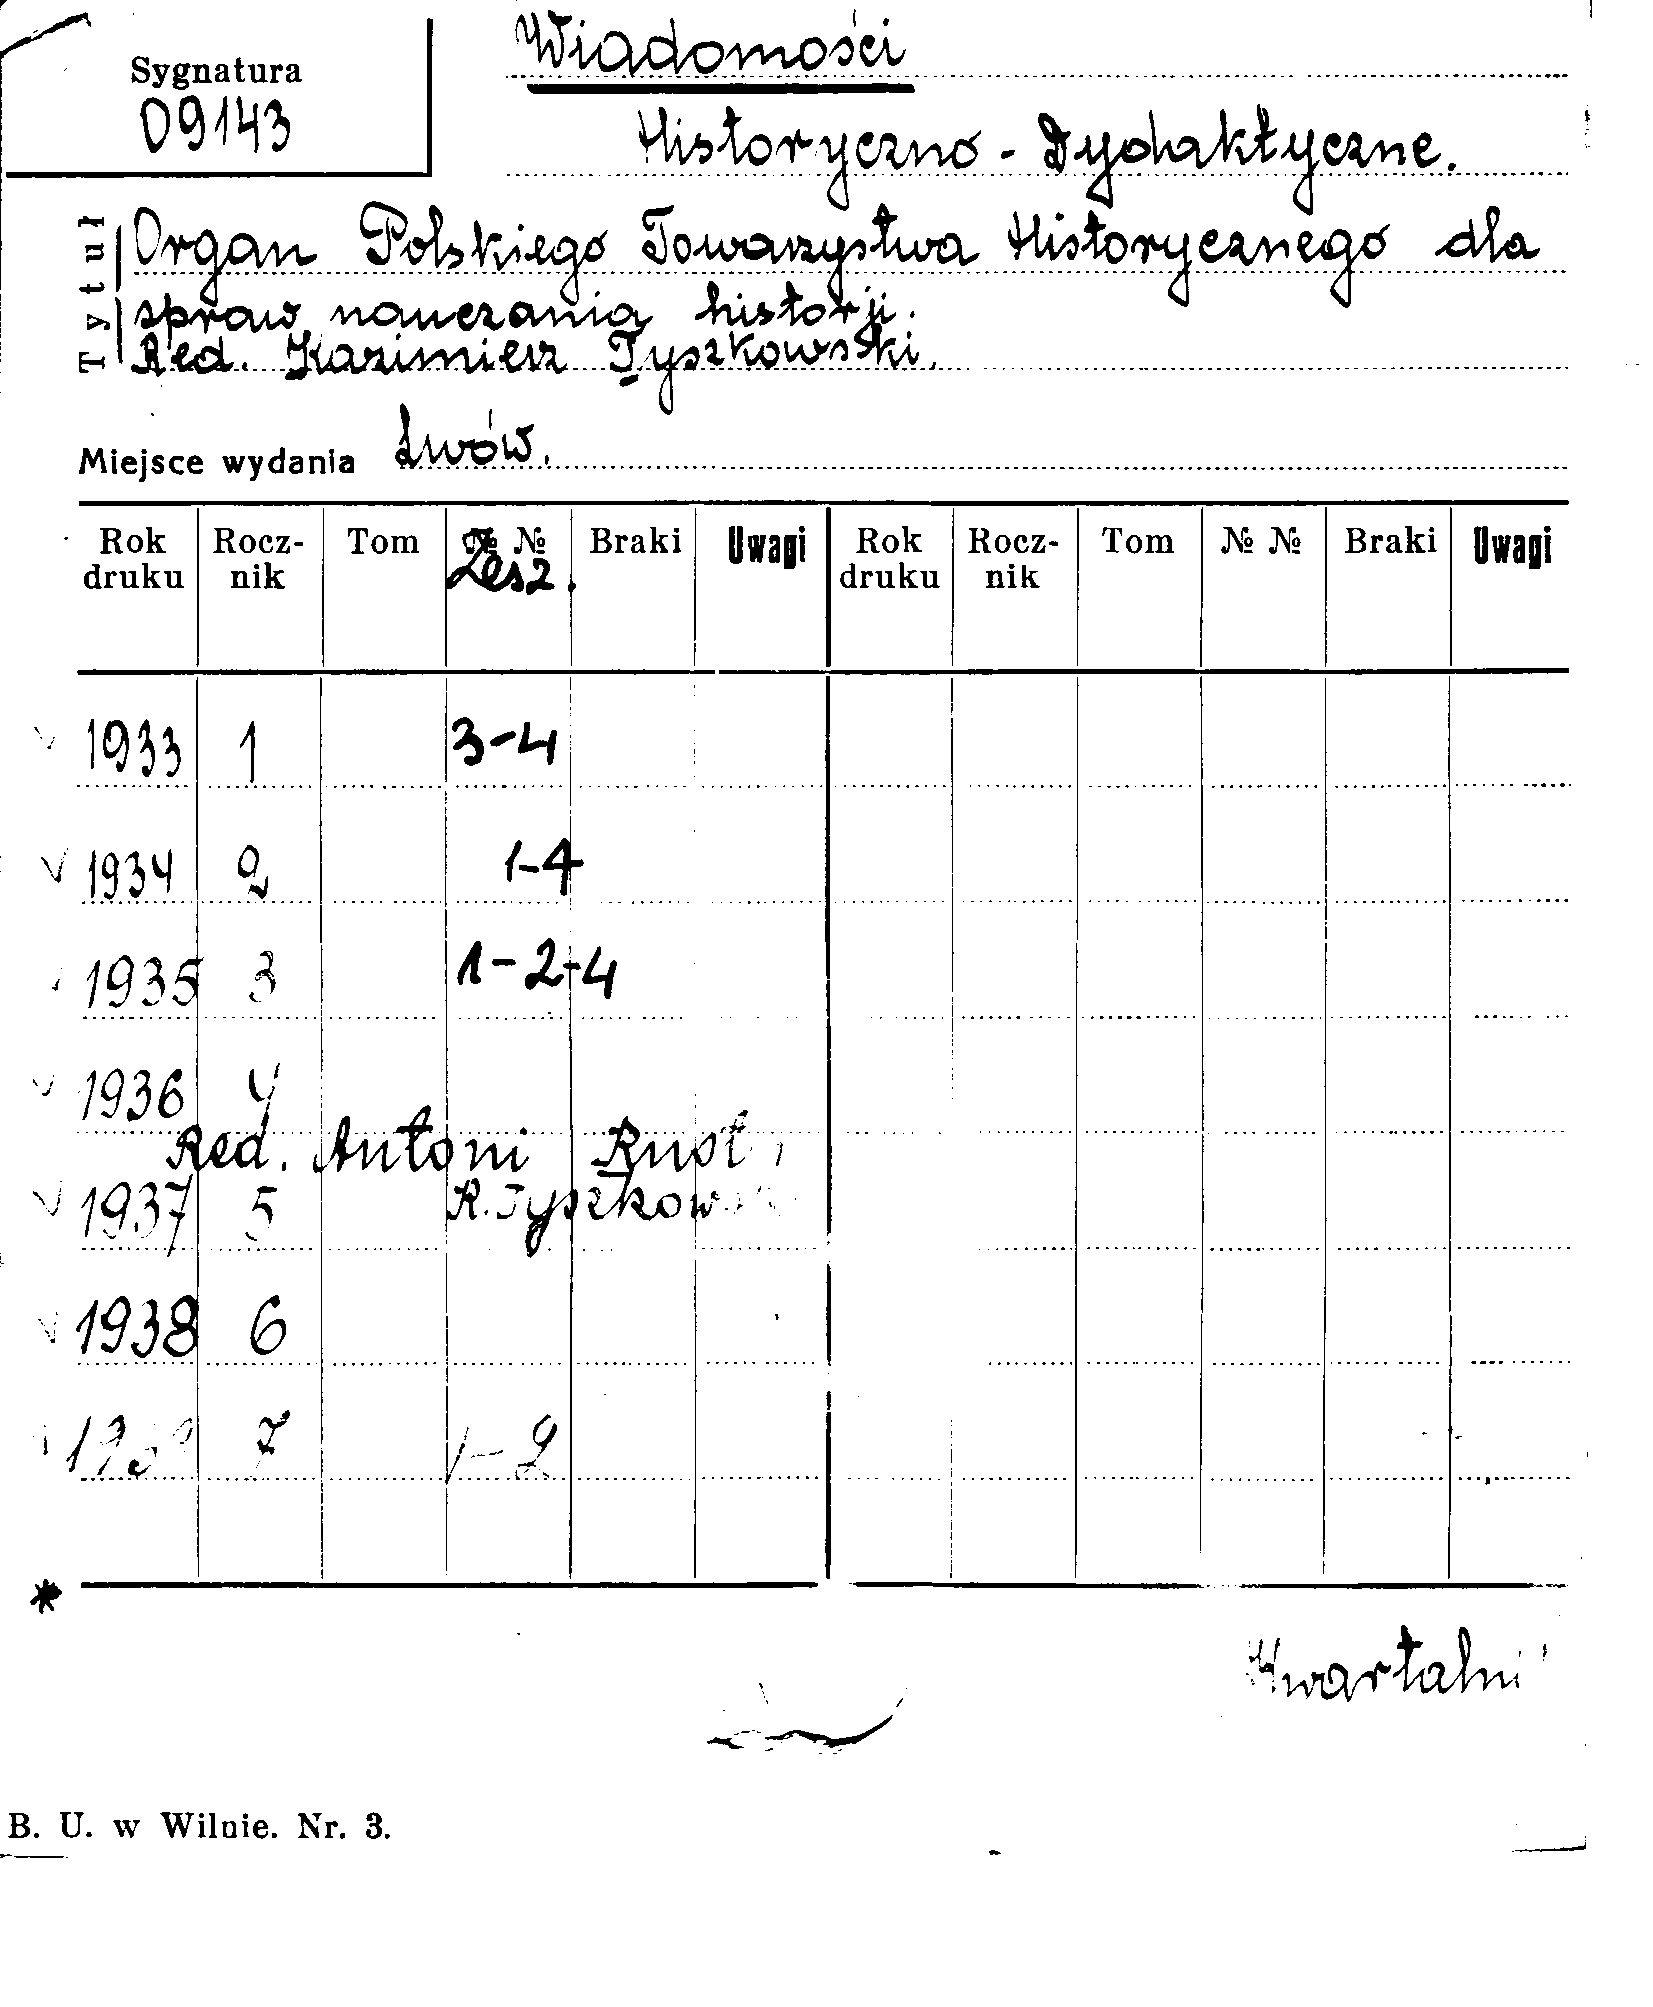 Sygnatura
09143
Wiadomości
Historyczno - Dydaktyczne.
Tytuł
Organ Polskiego Towarzystwa Historycznego dla
spraw nauczania historji.
Red. Kazimierz Tyszkowski.
Miejsce wydania Lwów.
Rok druku Rocz-nik Tom № № Braki Uwagi Rok druku Rocz-nik Tom № № Braki Uwagi
Zesz.
1933 1 3-4
1934 2 1-4
1935 3 1-2-4
1936 4
Red. Antoni
1937 5
1938 6
7 1-2
B. U. w Wilnie. Nr. 3.